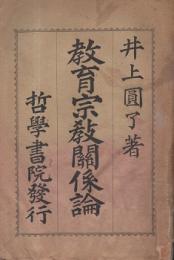 井上圓了著
教育宗教關係論
哲學書院發行